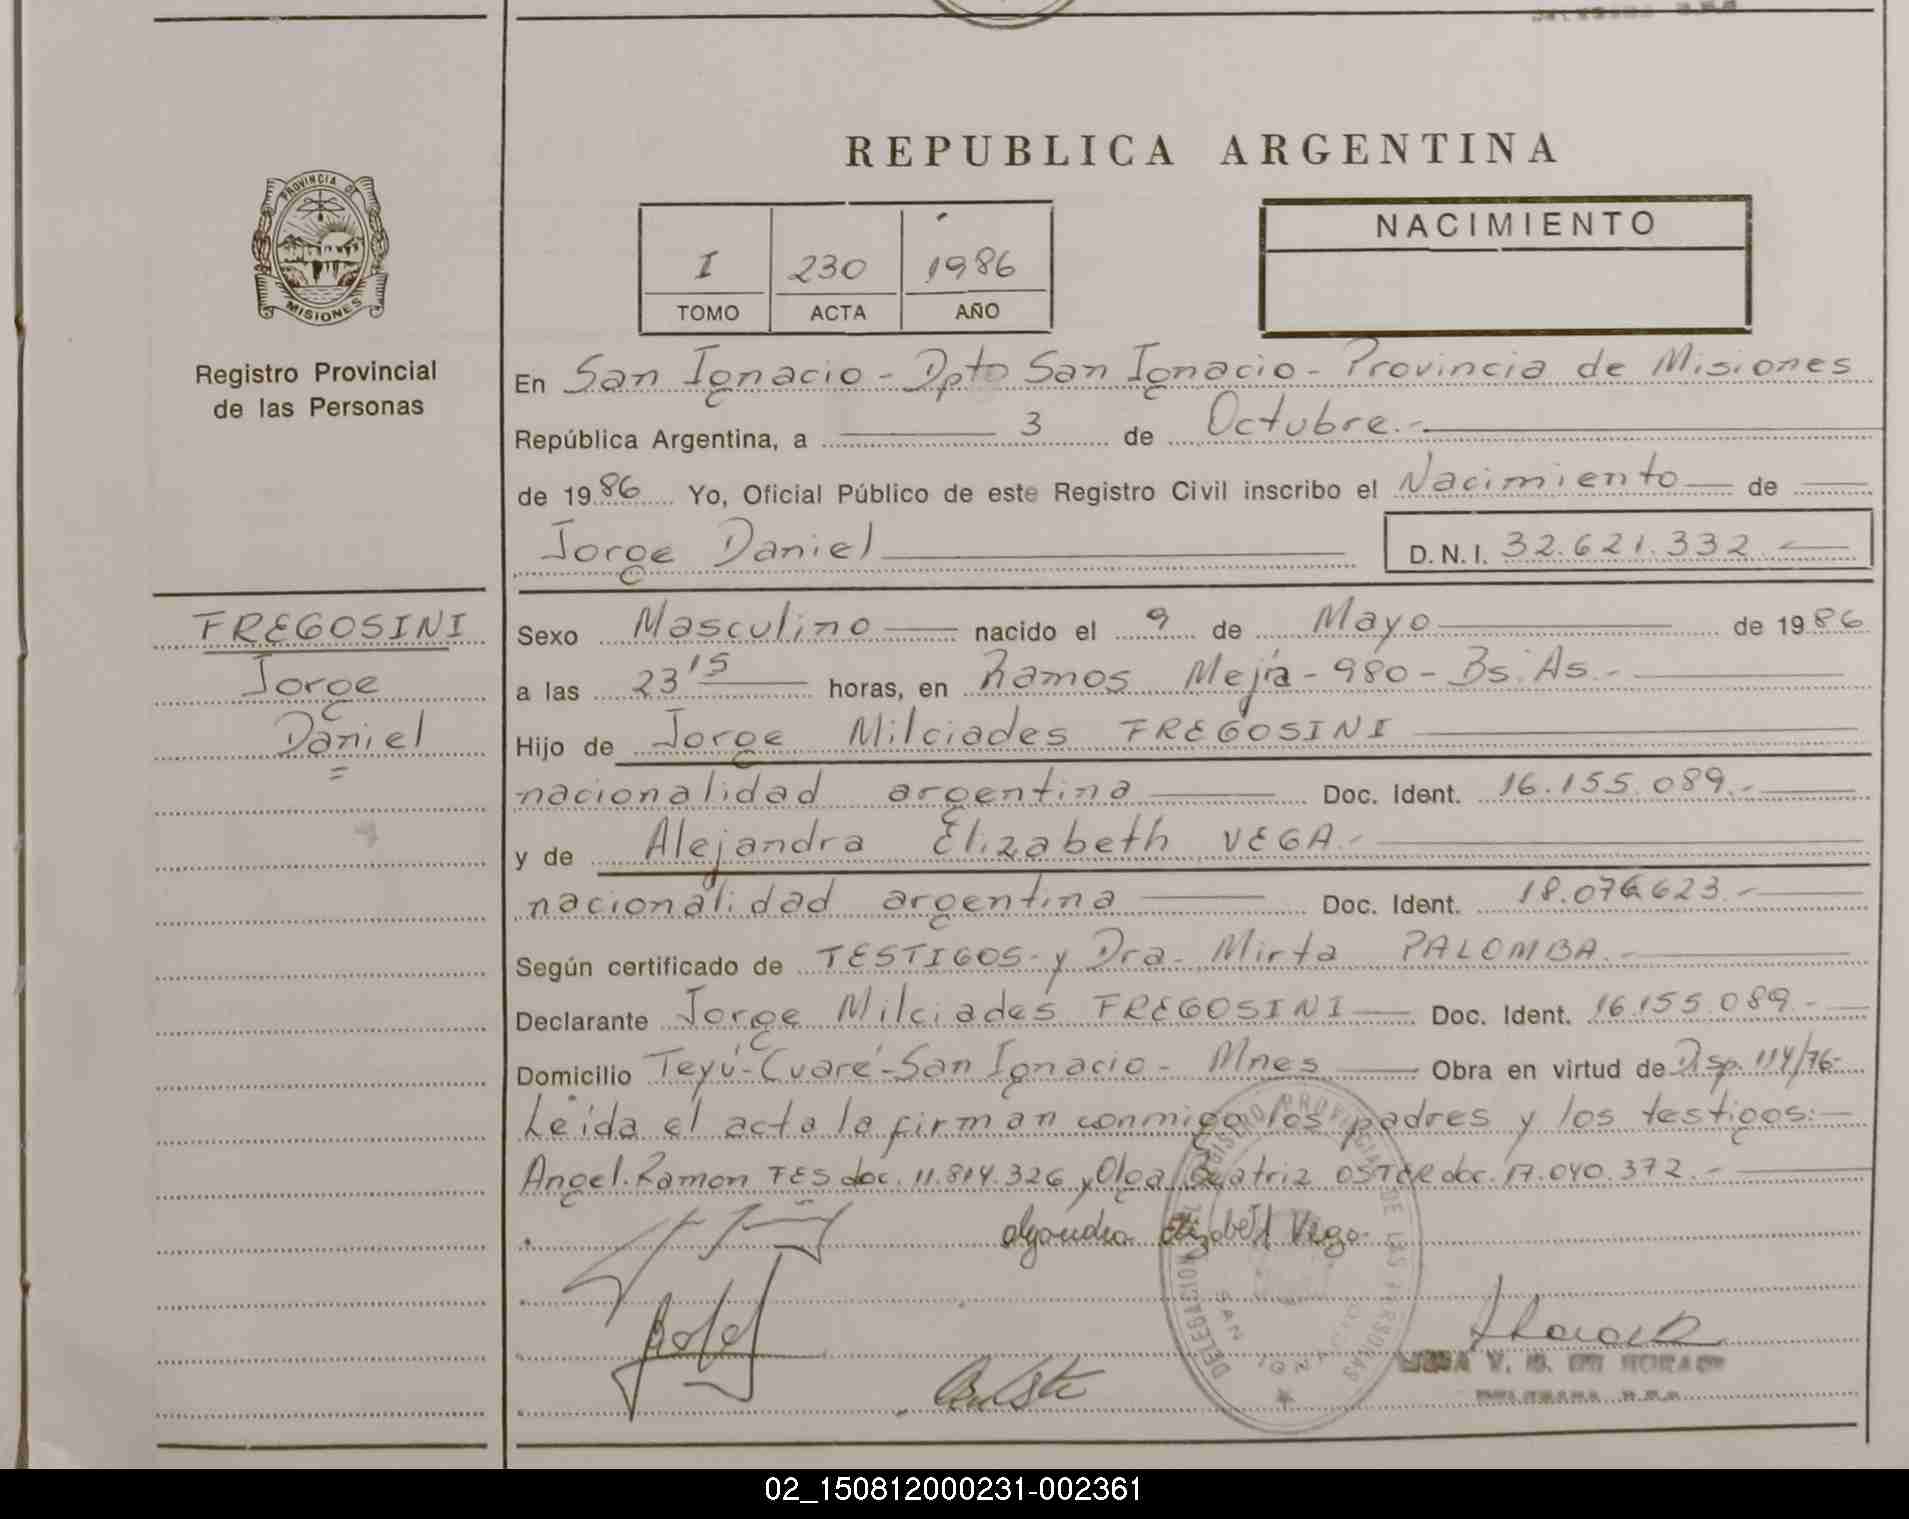 REPUBLICA ARGENTINA
PROVINCIA DE
MISIONES
Registro Provincial
de las Personas
I 230 1986
TOMO ACTA AÑO
NACIMIENTO
En San Ignacio - Dpto San Ignacio - Provincia de Misiones
República Argentina, a 3 de Octubre.-
de 1986 Yo, Oficial Público de este Registro Civil inscribo el Nacimiento de
Jorge Daniel D.N.I. 32.621.332.-
FREGOSINI
Jorge
Daniel
Sexo Masculino nacido el 9 de Mayo de 1986
a las 23 15 horas, en Ramos Mejía - 980 - Bs. As.-
Hijo de Jorge Milciades FREGOSINI
nacionalidad argentina Doc. Ident. 16.155.089.-
y de Alejandra Elizabeth VEGA.-
nacionalidad argentina Doc. Ident. 18.076.623.-
Según certificado de TESTIGOS - y Dra. Mirta PALOMBA.-
Declarante Jorge Milciades FREGOSINI Doc. Ident. 16.155.089.-
Domicilio Teyú-Cuaré-San Ignacio - Mnes Obra en virtud de Disp. 114/76-
Leida el acta la firman conmigo los padres y los testigos:
Angel Ramon FES doc. 11.814.326 y Olga Beatriz OSTER doc. 17.040.372.-
Alejandra Elizabeth Vega
DELEGACION REGISTRO PROVINCIAL DE LAS PERSONAS
SAN IGNACIO
02_150812000231-002361